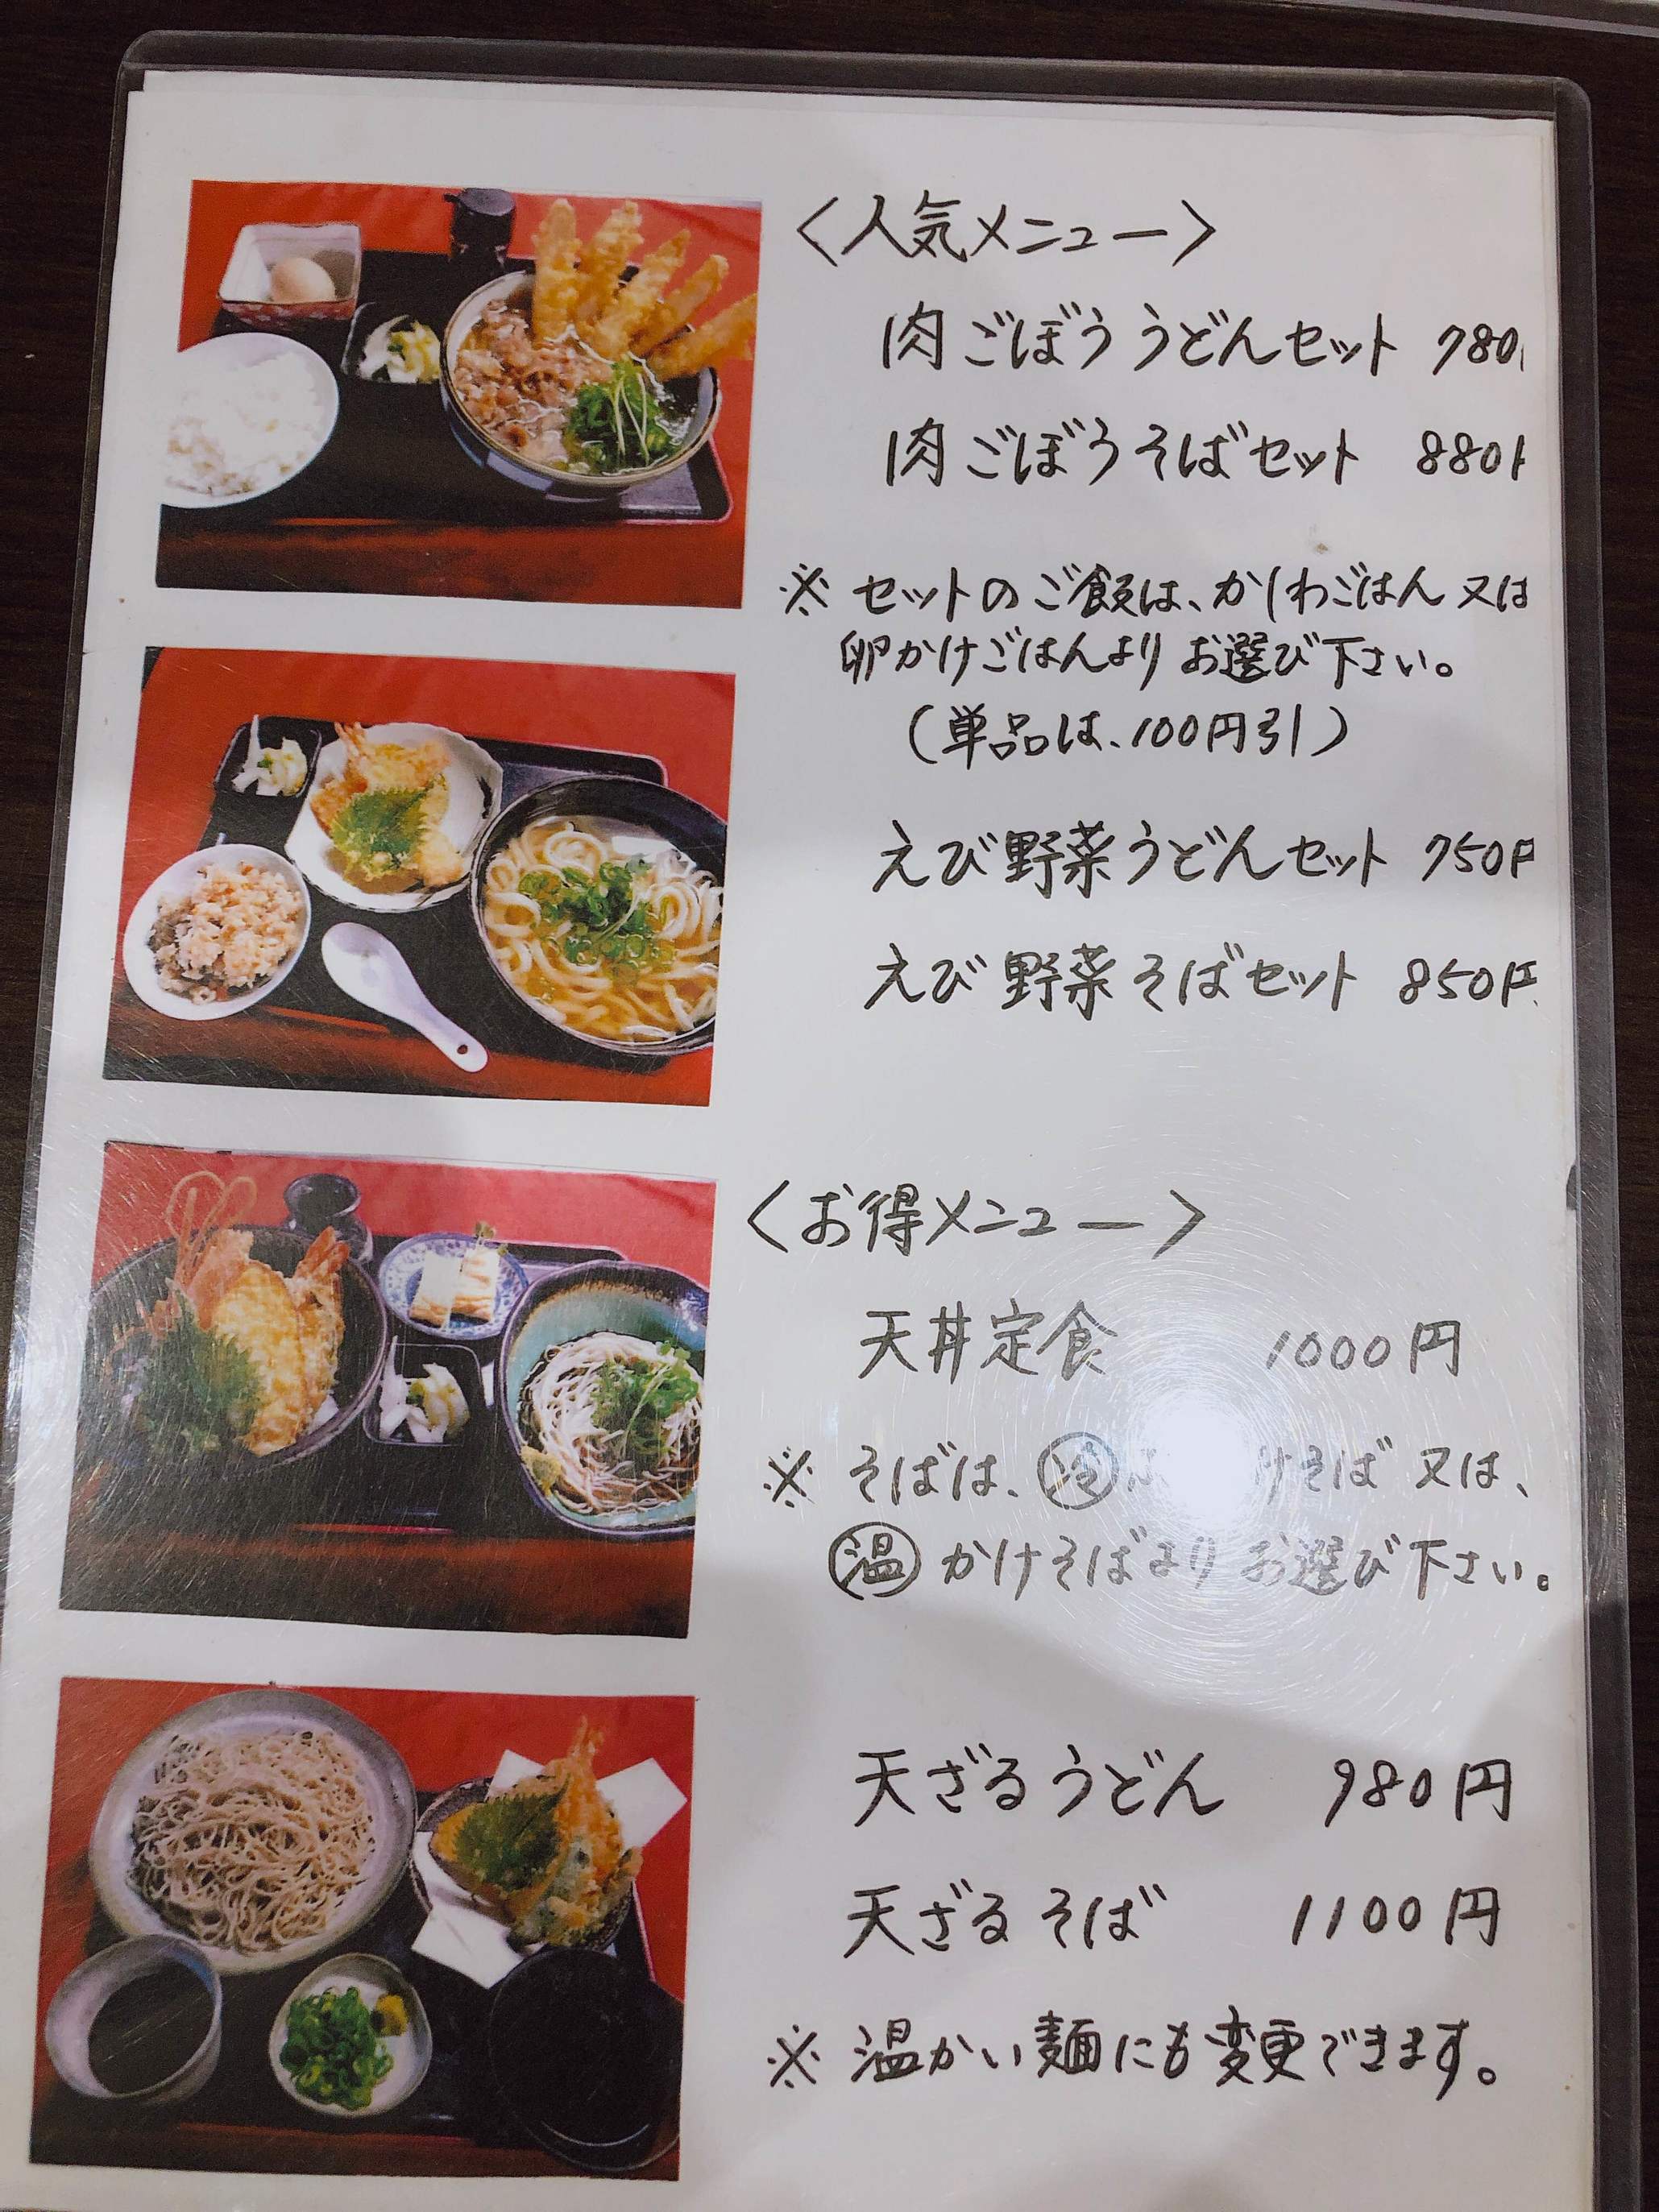 〈人気メニュー〉
肉ごぼううどんセット 780
肉ごぼうそばセット 880
※ セットのご飯は、かしわごはん又は
卵かけごはんよりお選び下さい。
(単品は、100円引)
えび野菜うどんセット 750円
えび野菜そばセット 850円
〈お得メニュー〉
天丼定食 1000円
※ そばは、冷 けそば又は、
温 かけそばよりお選び下さい。
天ざるうどん 980円
天ざるそば 1100円
※ 温かい麺にも変更できます。